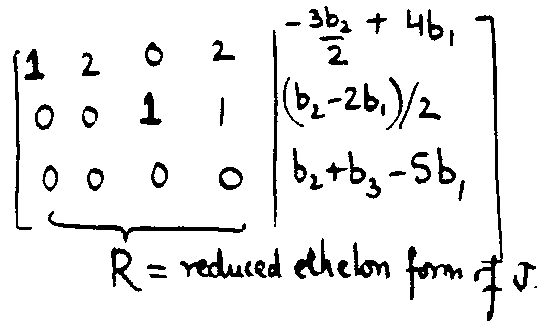 1 2 0 2 -3b₂/2 + 4b₁
0 0 1 1 (b₂-2b₁)/2
0 0 0 0 b₂+b₃-5b₁
R = reduced ethelon form of J.